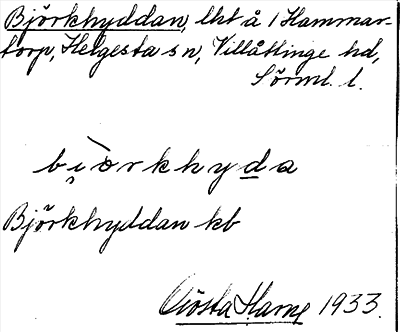 Björkhyddan, lht å 1 Hammar-
torp, Helgesta sn, Villåttinge hd,
Sörml. l.
bi̯òrkhyda
Björkhyddan kb
Gösta Harne 1933.